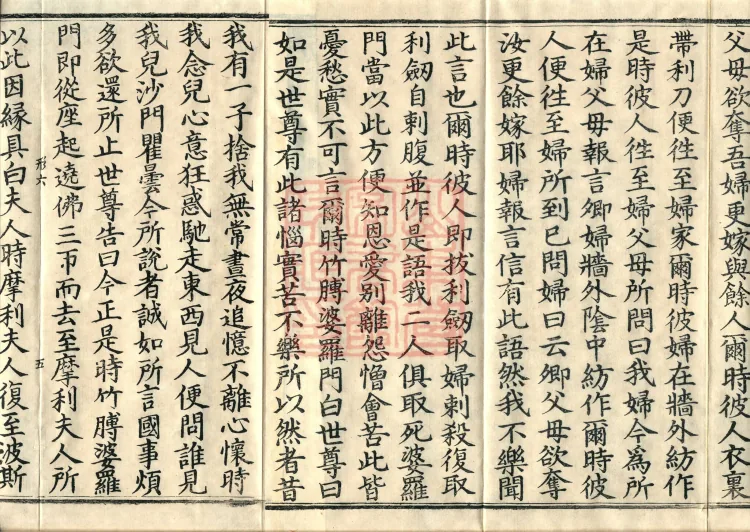 父母欲奪吾婦更嫁與餘人爾時彼人衣裏
帶利刀便徃至婦家爾時彼婦在牆外紡作
是時彼人徃至婦父母所問曰我婦今爲所
在婦父母報言卿婦牆外陰中紡作爾時彼
人便徃至婦所到已問婦曰云卿父母欲奪
汝更餘嫁耶婦報言信有此語然我不樂聞
此言也爾時彼人即拔利劒取婦刺殺復取
利劒自刺腹並作是語我二人俱取死婆羅
門當以此方便知恩愛別離怨憎會苦此皆
憂愁實不可言爾時竹膊婆羅門白世尊曰
如是世尊有此諸惱實苦不樂所以然者昔
我有一子捨我無常晝夜追憶不離心懷時
我念兒心意狂惑馳走東西見人便問誰見
我兒沙門瞿曇今所說者誠如所言國事煩
多欲還所止世尊告曰今正是時竹膊婆羅
門即從座起遶佛三帀而去至摩利夫人所
形六
五
以此因縁具白夫人時摩利夫人復至波斯